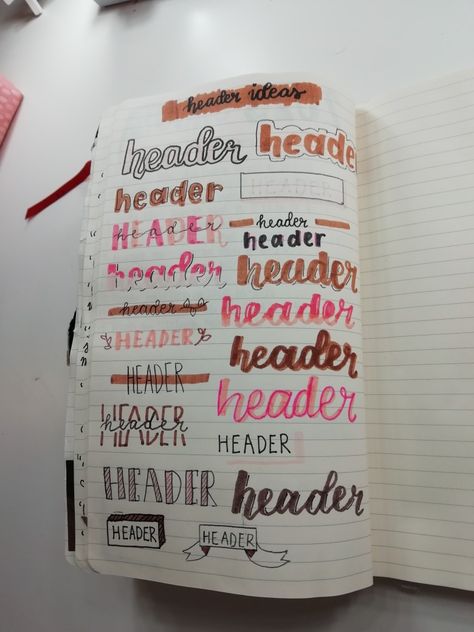 header ideas
header
heade
header
HEADER
HEADER
header
header
header
header
header
header
header
HEADER
header
HEADER
header
HEADER
header
HEADER
HEADER
header
HEADER
HEADER